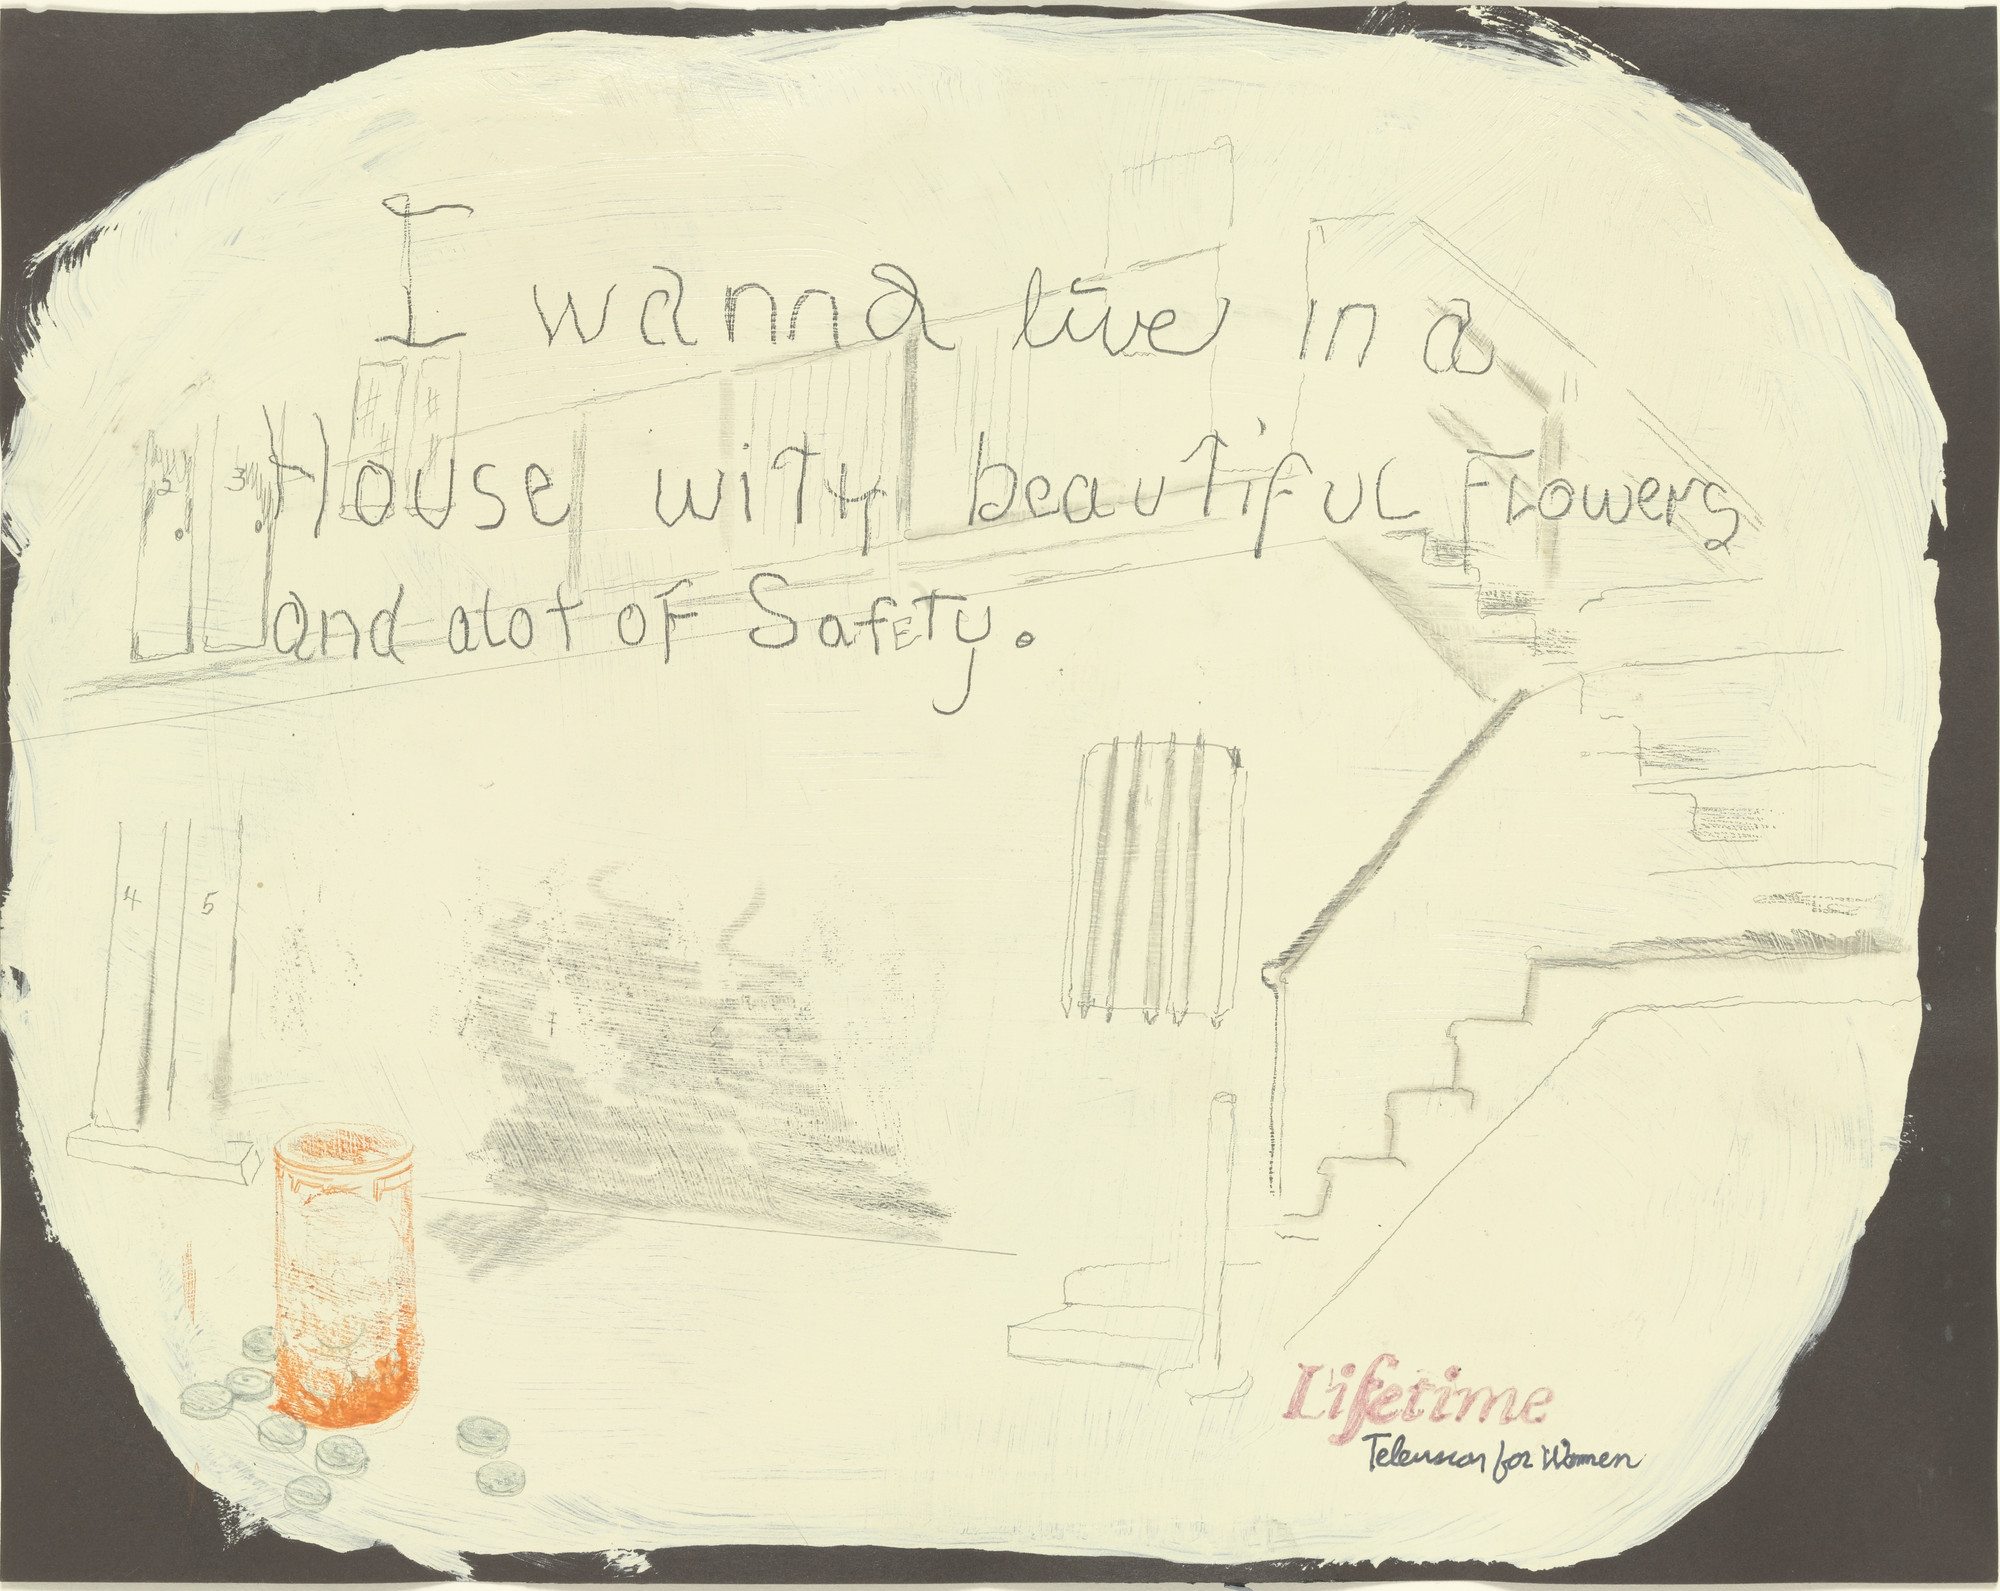 I wanna live in a
House wity beautiful Flowers
and alot of SafETy.
2 3
4 5
Lifetime
Television for Women